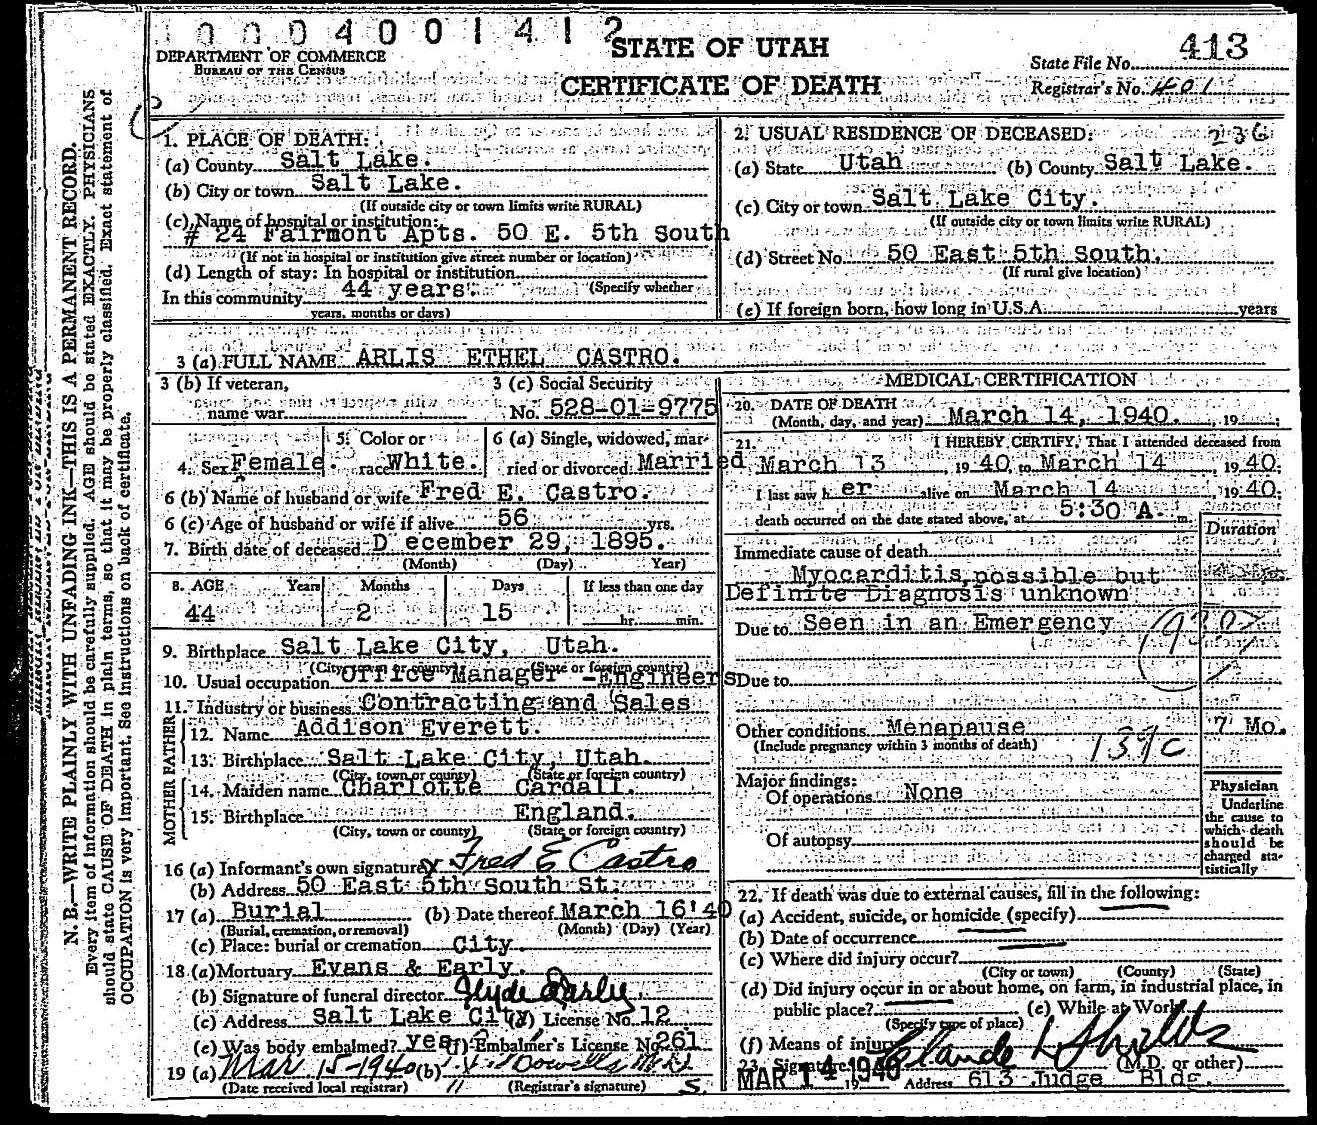 1 0 0 0 4 0 0 1 4 1 2
STATE OF UTAH
CERTIFICATE OF DEATH
DEPARTMENT OF COMMERCE
BUREAU OF THE CENSUS
State File No. 413
Registrar's No. 401
N. B.—WRITE PLAINLY WITH UNFADING INK—THIS IS A PERMANENT RECORD.
Every item of information should be carefully supplied. AGE should be stated EXACTLY. PHYSICIANS
should state CAUSE OF DEATH in plain terms, so that it may be properly classified. Exact statement of
OCCUPATION is very important. See instructions on back of certificate.
1. PLACE OF DEATH:
(a) County Salt Lake.
(b) City or town Salt Lake.
(If outside city or town limits write RURAL)
(c) Name of hospital or institution:
# 24 Fairmont Apts. 50 E. 5th South
(If not in hospital or institution give street number or location)
(d) Length of stay: In hospital or institution
In this community 44 years. (Specify whether
years, months or days)
2. USUAL RESIDENCE OF DECEASED: 236
(a) State Utah (b) County Salt Lake.
(c) City or town Salt Lake City.
(If outside city or town limits write RURAL)
(d) Street No. 50 East 5th South.
(If rural give location)
(e) If foreign born, how long in U.S.A. years
3 (a) FULL NAME ARLIS ETHEL CASTRO.
3 (b) If veteran,
name war
3 (c) Social Security
No. 528-01-9775
4. Sex Female. 5. Color or race White. 6 (a) Single, widowed, married or divorced. Married
6 (b) Name of husband or wife Fred E. Castro.
6 (c) Age of husband or wife if alive 56 yrs.
7. Birth date of deceased D ecember 29, 1895.
(Month) (Day) Year)
8. AGE Years Months Days If less than one day
44 2 15 hr. min.
9. Birthplace Salt Lake City, Utah.
(City, town or county) (State or foreign country)
10. Usual occupation Office Manager -Engineers
11. Industry or business Contracting and Sales
FATHER
12. Name Addison Everett.
13. Birthplace Salt Lake City, Utah.
(City, town or county) (State or foreign country)
MOTHER
14. Maiden name Charlotte Cardall.
15. Birthplace England.
(City, town or county) (State or foreign country)
16 (a) Informant's own signature X Fred E Castro
(b) Address 50 East 5th South St.
17 (a) Burial (b) Date thereof March 16'40
(Burial, cremation, or removal) (Month) (Day) (Year)
(c) Place: burial or cremation City.
18 (a) Mortuary Evans & Early.
(b) Signature of funeral director Clyde Early
(c) Address Salt Lake City (d) License No. 12
(e) Was body embalmed? yes (f) Embalmer's License No. 261
19 (a) Mar 15-1940 (b)
(Date received local registrar) (Registrar's signature)
MEDICAL CERTIFICATION
20. DATE OF DEATH
(Month, day, and year) March 14, 1940. , 19 ;
21. I HEREBY CERTIFY, That I attended deceased from
March 13 , 19 40 to March 14 , 19 40;
I last saw h er alive on March 14 , 19 40;
death occurred on the date stated above, at 5:30 A. m.
Duration
Immediate cause of death
Myocarditis possible but
Definite Diagnosis unknown
Due to Seen in an Emergency
Due to
Other conditions Menapause 7 Mo.
(Include pregnancy within 3 months of death) 139c
Major findings:
Of operations None
Of autopsy
Physician
Underline
the cause to
which death
should be
charged sta-
tistically
22. If death was due to external causes, fill in the following:
(a) Accident, suicide, or homicide (specify)
(b) Date of occurrence
(c) Where did injury occur?
(City or town) (County) (State)
(d) Did injury occur in or about home, on farm, in industrial place, in
public place? (e) While at Work
(Specify type of place)
(f) Means of injury
23. Signature Claude L Shields (M.D. or other)
MAR 14 1940 19 Address 613 Judge Bldg.